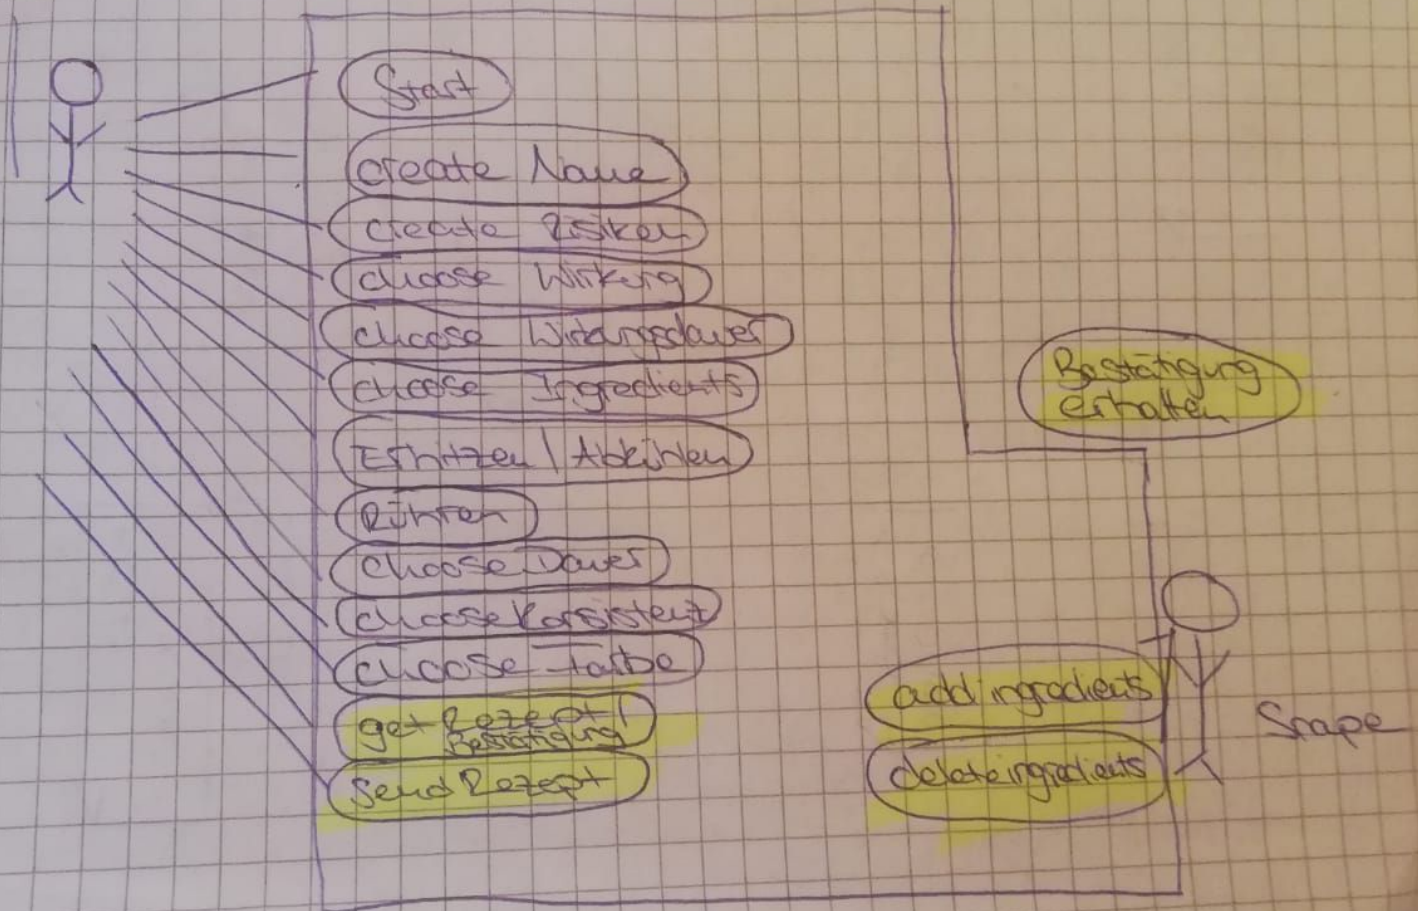 Start
create Name
create Risiken
choose Wirkung
choose Wirkungsdauer
choose Ingredients
Erhitzen / Abkühlen
Rühren
choose Dauer
choose Konsistenz
choose Farbe
get Rezept /
Bestätigung
send Rezept
Bestätigung
erhalten
add ingredients
delete ingredients
Snape